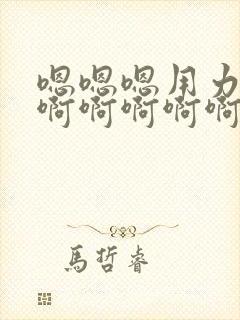 嗯嗯嗯用力
啊啊啊啊啊
馬哲睿